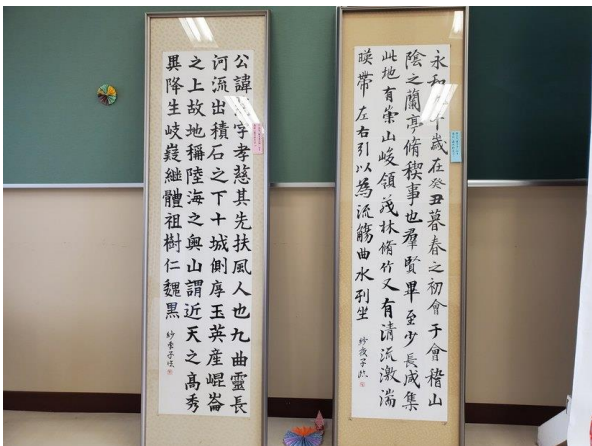 永和年歲在癸丑暮春之初會于會稽山
陰之蘭亭脩稧事也羣賢畢至少長咸集
此地有崇山峻領茂林脩竹又有清流激湍
暎帶左右引以為流觴曲水列坐
公諱字孝慈其先扶風人也九曲靈長
河流出積石之下十城側厚玉英産崐崘
之上故地稱陸海之奧山謂近天之高秀
異降生岐嶷継體祖樹仁魏黒